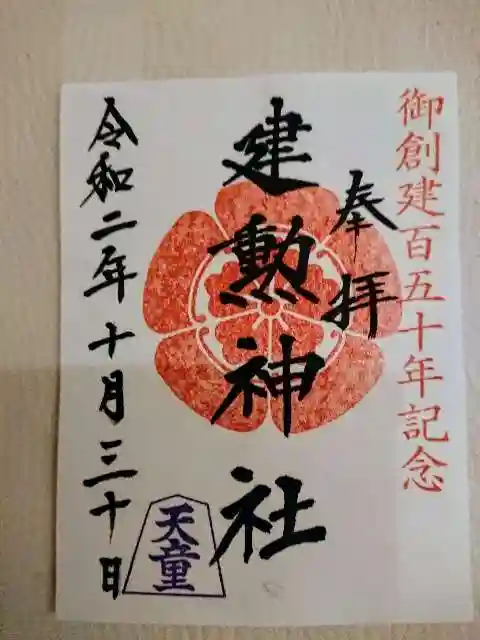 御創建百五十年記念
奉拝
建勲神社
令和二年十月三十日
天童